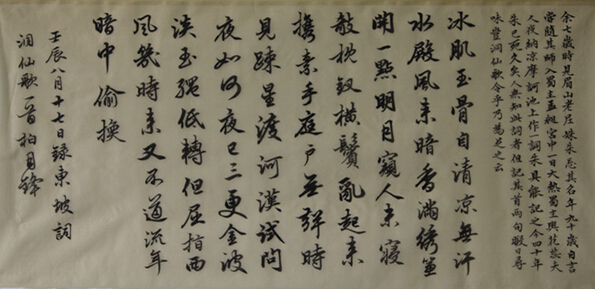 余七歲時見眉山老尼姓朱忘其名年九十歲自言
嘗隨其師入蜀主孟昶宮中一日大熱蜀主與花蕊夫
人夜納凉摩訶池上作一詞朱具能記之今四十年
朱已死久矣人無知此詞者但記其首兩句暇日尋
味豈洞仙歌令乎乃為足之云
冰肌玉骨自清凉無汗
水殿風来暗香滿繡簾
開一點明月窺人未寢
敧枕釵橫鬢亂起来
携素手庭户无聲時
見疎星渡河漢試問
夜如何夜已三更金波
淡玉繩低轉但屈指西
風幾時来又不道流年
暗中偷換
壬辰八月十七日録東坡詞
洞仙歌一首